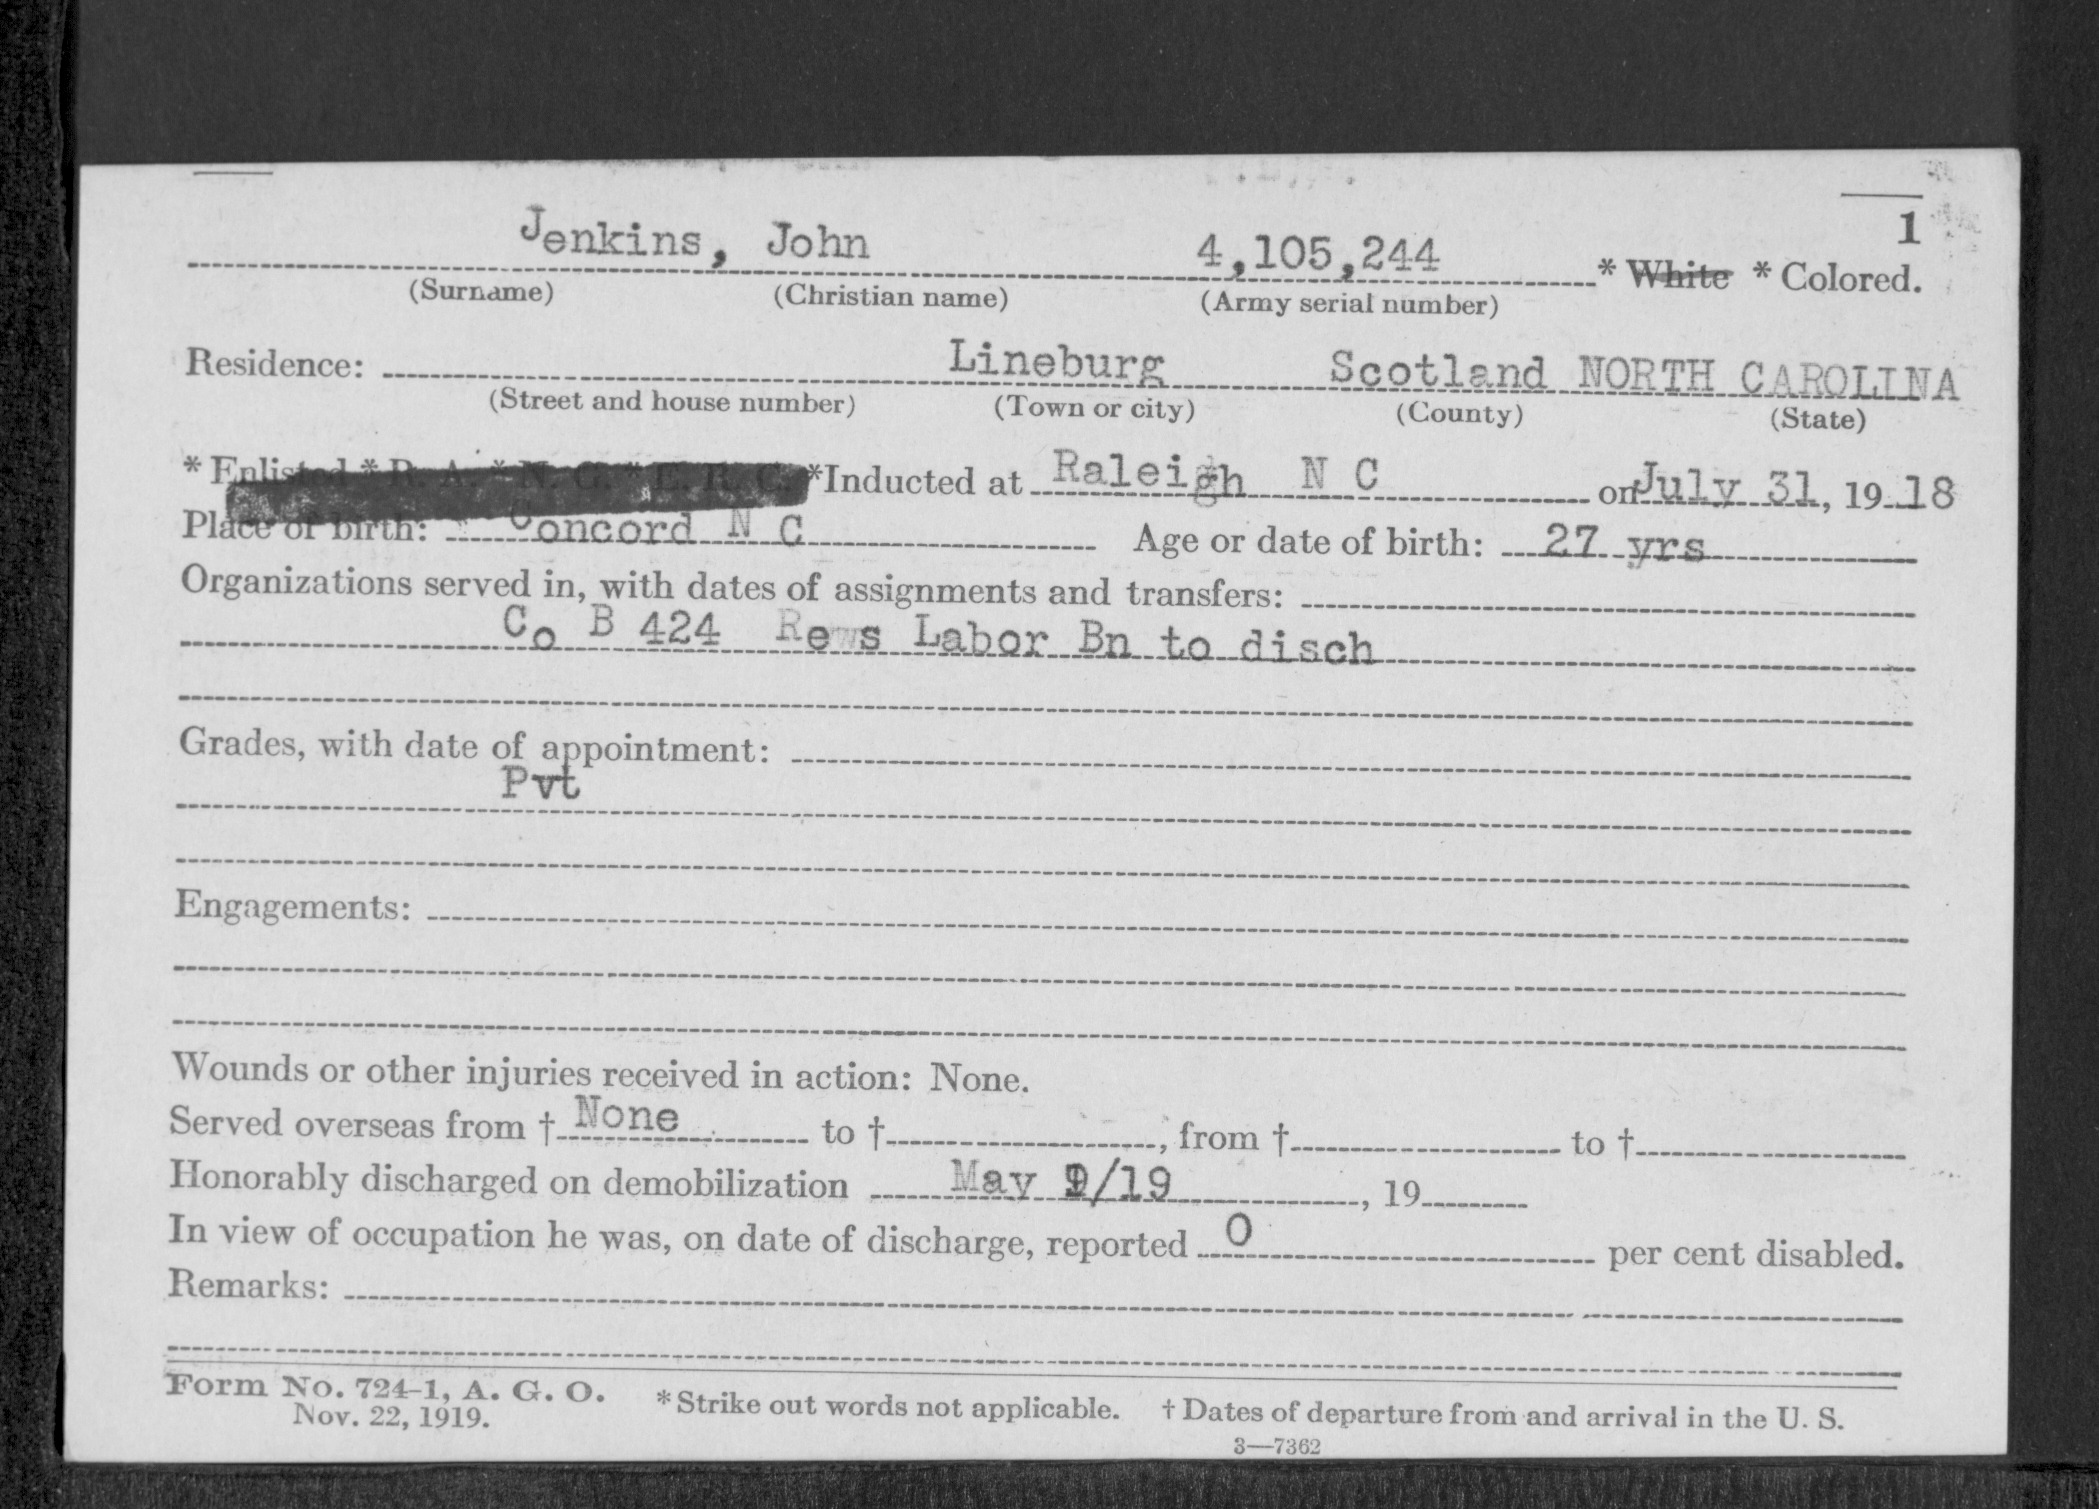 1
Jenkins, John 4,105,244 * White * Colored.
(Surname) (Christian name) (Army serial number)
Residence: Lineburg Scotland NORTH CAROLINA
(Street and house number) (Town or city) (County) (State)
* Enlisted * R. A. * N. G. * E. R. C. *Inducted at Raleigh N C on July 31, 19 18
Place of birth: Concord N C Age or date of birth: 27 yrs
Organizations served in, with dates of assignments and transfers:
Co B 424 Res Labor Bn to disch
Grades, with date of appointment:
Pvt
Engagements:
Wounds or other injuries received in action: None.
Served overseas from † None to †, from † to †
Honorably discharged on demobilization May /19, 19
In view of occupation he was, on date of discharge, reported 0 per cent disabled.
Remarks:
Form No. 724-1, A. G. O. * Strike out words not applicable. † Dates of departure from and arrival in the U. S.
Nov. 22, 1919.
3—7362